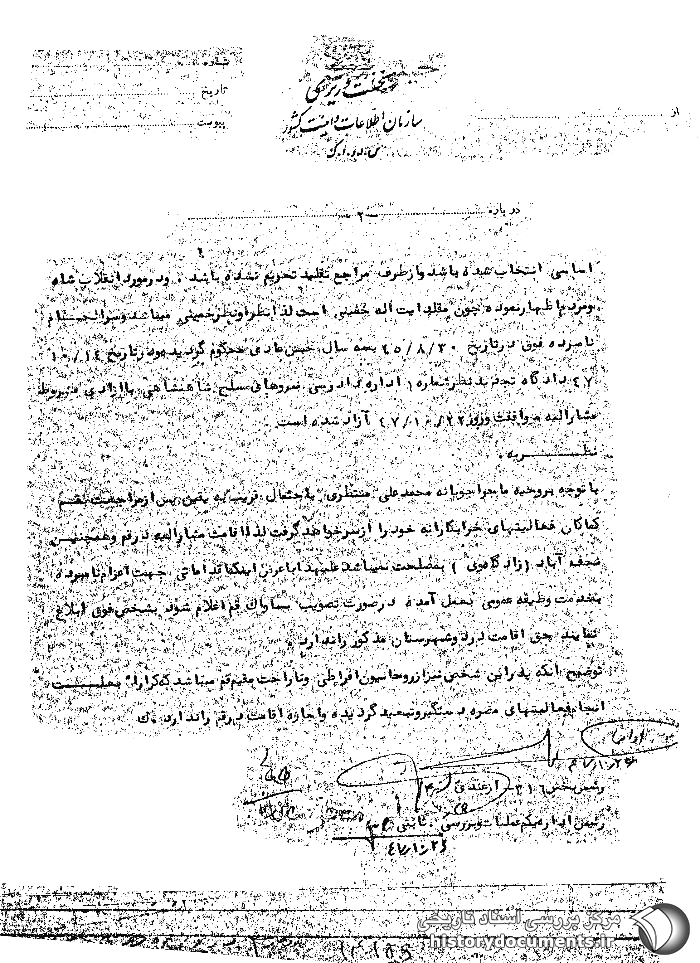 شماره
تاریخ
پیوست
از
نخست وزیری
سازمان اطلاعات و امنیت کشور
س.ا.و.ا.ک
درباره ۲
اساسی انتخاب شده باشد و از طرف مراجع تقلید تحریم نشده باشد . و در مورد انقلاب شاه
و مردم اظهار نموده چون مقلد آیت اله خمینی است لذا نظر او نظر خمینی میباشد و سرانجام
نامبرده فوق در تاریخ ۴۵/۸/۳۰ بسه سال حبس عادی محکوم گردیده بود و تاریخ ۱۰/۱۴
۴۷ دادگاه تجدید نظر شماره ۱ اداره دادرسی نیروهای مسلح شاهنشاهی با آزادی مشروط
مشارالیه موافقت و روز ۴۷/۱۰/۲۲ آزاد شده است .
نظریه .
با توجه بروحیه ماجراجویانه محمدعلی منتظری با احتمال قریب به یقین پس از مراجعت بقم
کماکان فعالیتهای خرابکارانه خود را از سر خواهد گرفت لذا اقامت مشارالیه در قم و همچنین
نجف آباد (زادگاه وی) بمصلحت نمیباشد علیهذا با عرض اینکه اقداماتی جهت اعزام نامبرده
بخدمت وظیفه عمومی بعمل آمده در صورت تصویب بساواک قم اعلام شود بشخص فوق ابلاغ
نمایند حق اقامت در دو شهرستان مذکور را ندارد .
توضیح آنکه پدر این شخص نیز از روحانیون افراطی و ناراحت مقیم قم میباشد که کرارا بعلت
انجام فعالیتهای مضره دستگیر و تبعید گردیده و اجازه اقامت در قم را ندارد .
رئیس بخش ۳۱۶ - ازغندی
رئیس اداره یکم عملیات و بررسی . ثابتی
مرکز بررسی اسناد تاریخی
historydocuments.ir